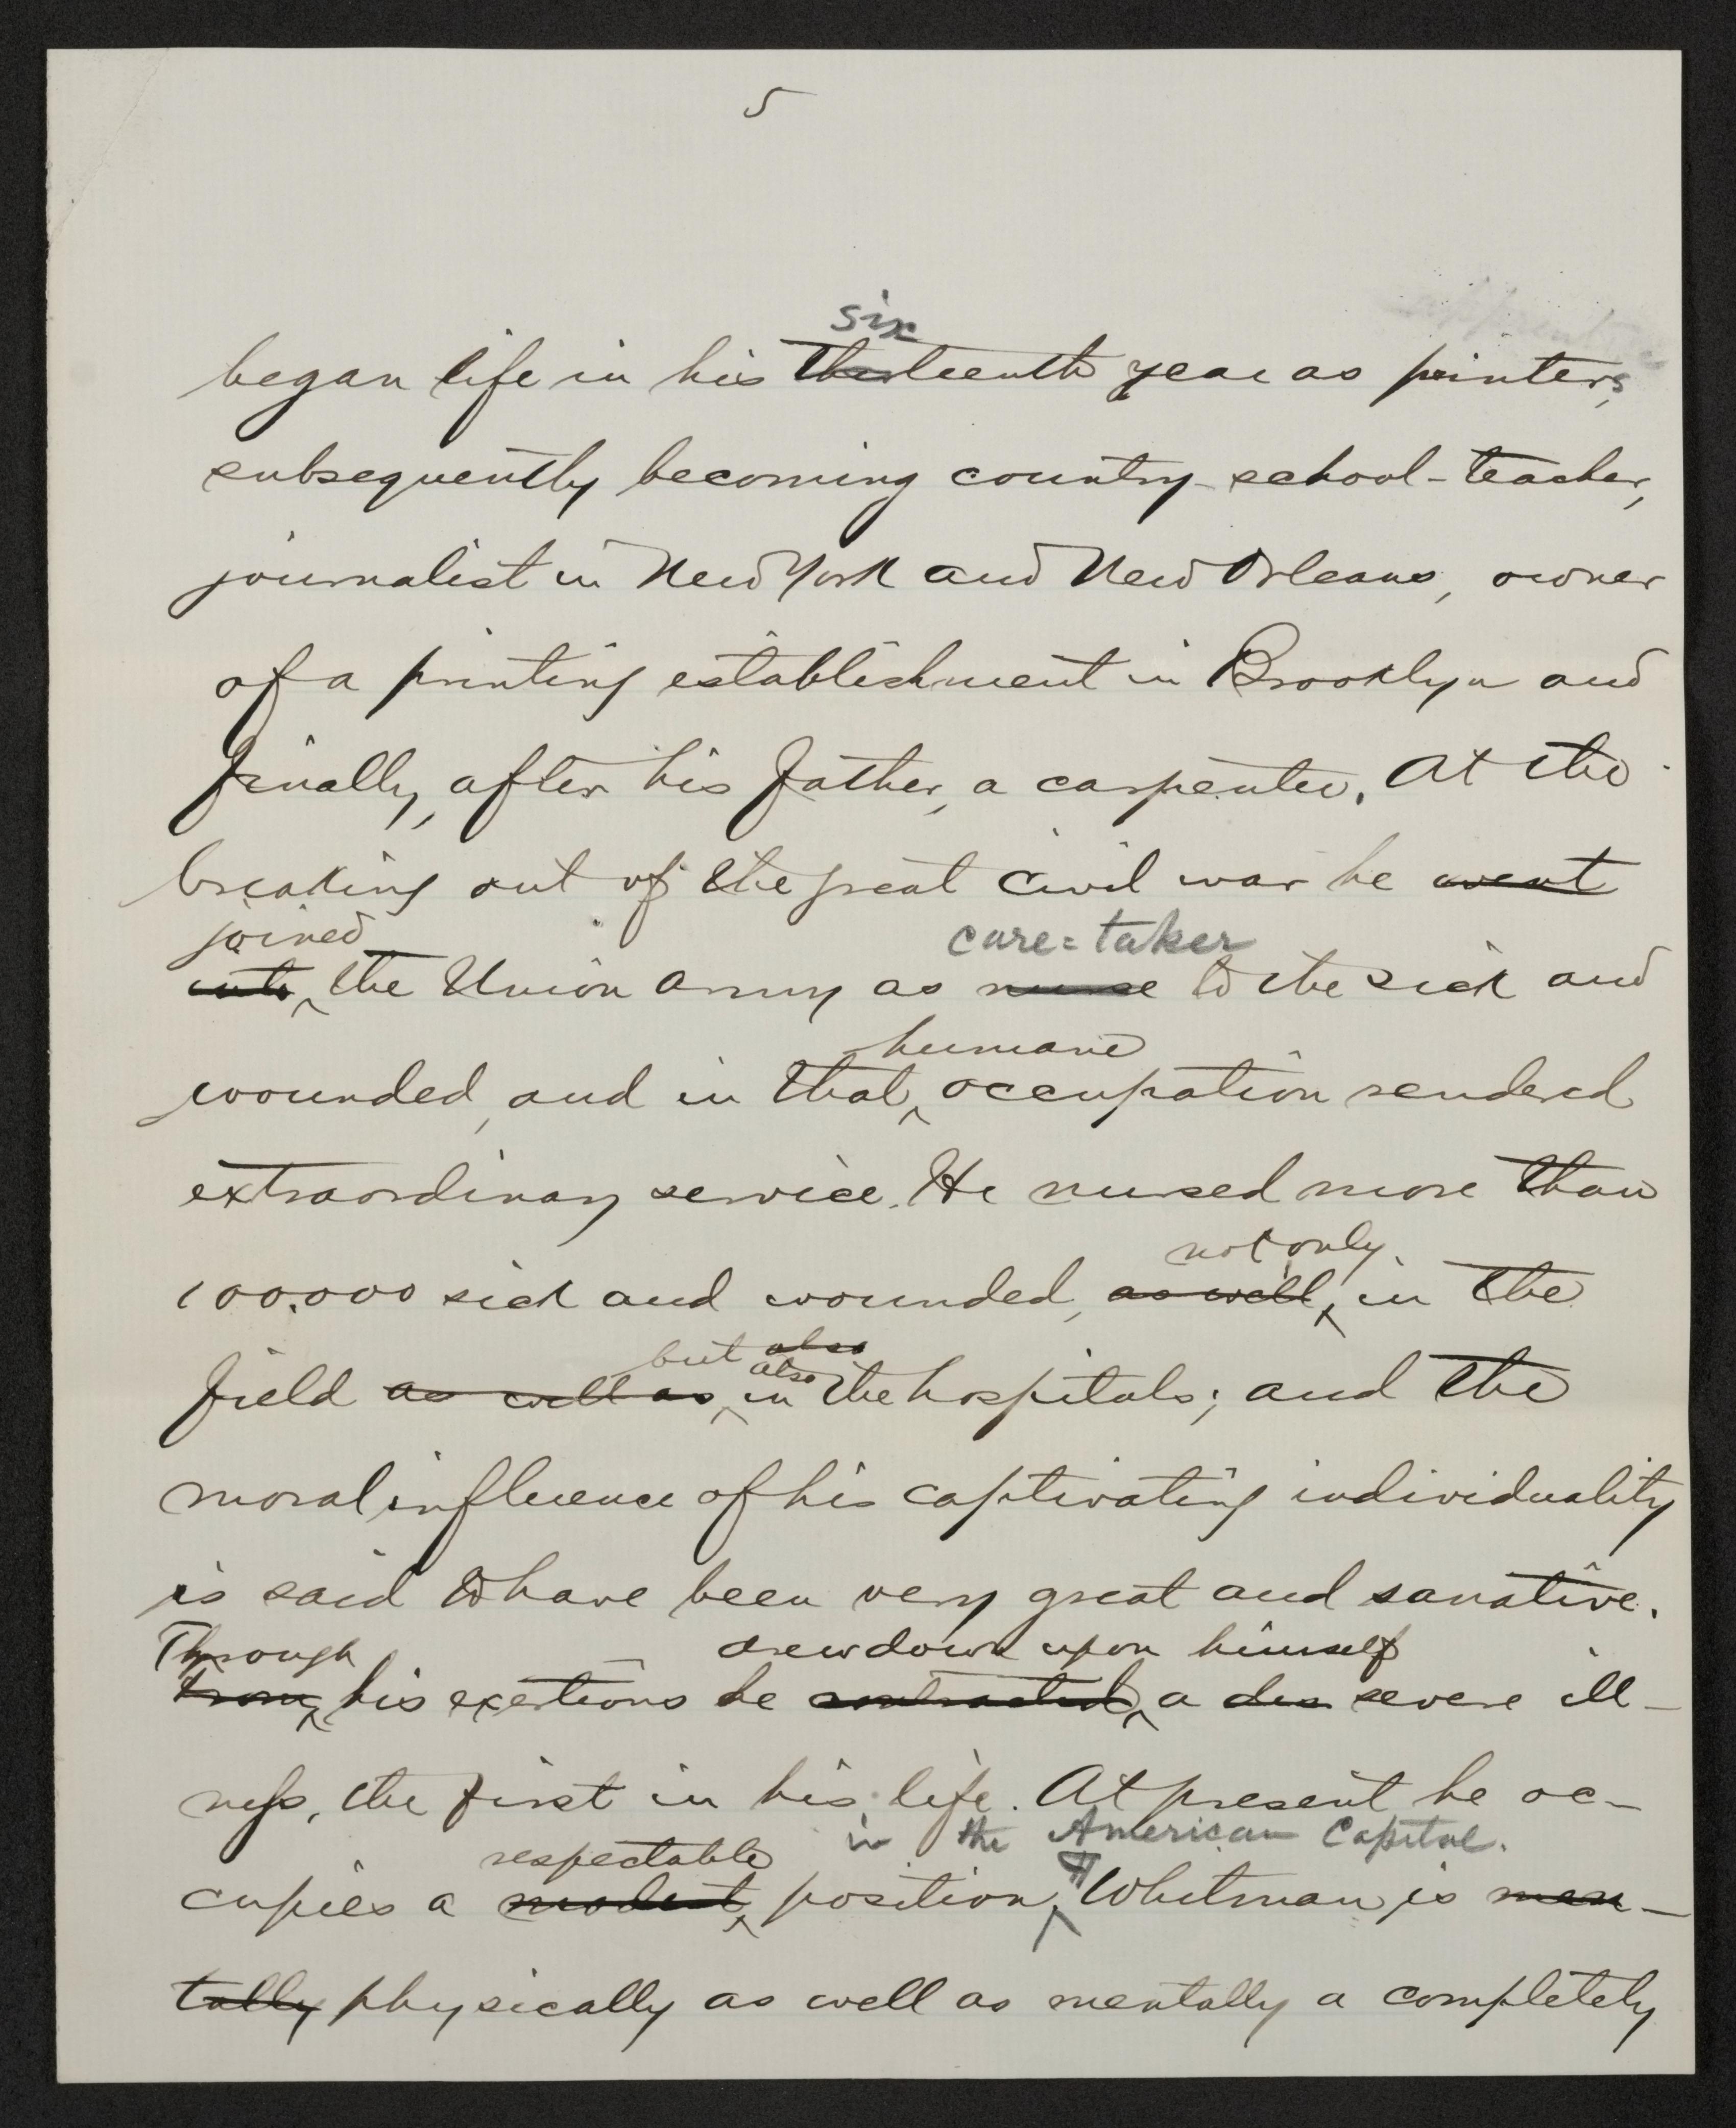 5
six
began life in his thirteenth year as printers,
subsequently becoming country-school-teacher,
journalist in New York and New Orleans, owner
of a printing establishment in Brooklyn and
finally, after his father, a carpenter. At the
breaking out of the great civil war he went
joined care=taker
into ‸ the Union Army as nurse to the sick and
humane
wounded, and in that ‸ occupation rendered
extraordinary service. He nursed more than
not only
100.000 sick and wounded, as well ‸ in the
but also
also
field as well as ‸ in the hospitals; and the
moral influence of his captivating individuality
is said to have been very great and sanative.
Through drew down upon himself
From ‸ his exertions he contracted ‸ a des severe ill-
ness, the first in his life. At present he oc-
respectable in the American Capital.
cupies a modest ‸ position. ‸ Whitman is men-
tally physically as well as mentally a completely